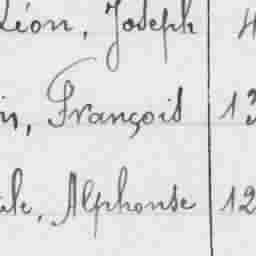 Léon, Joseph 4
François 13
Alphonse 12